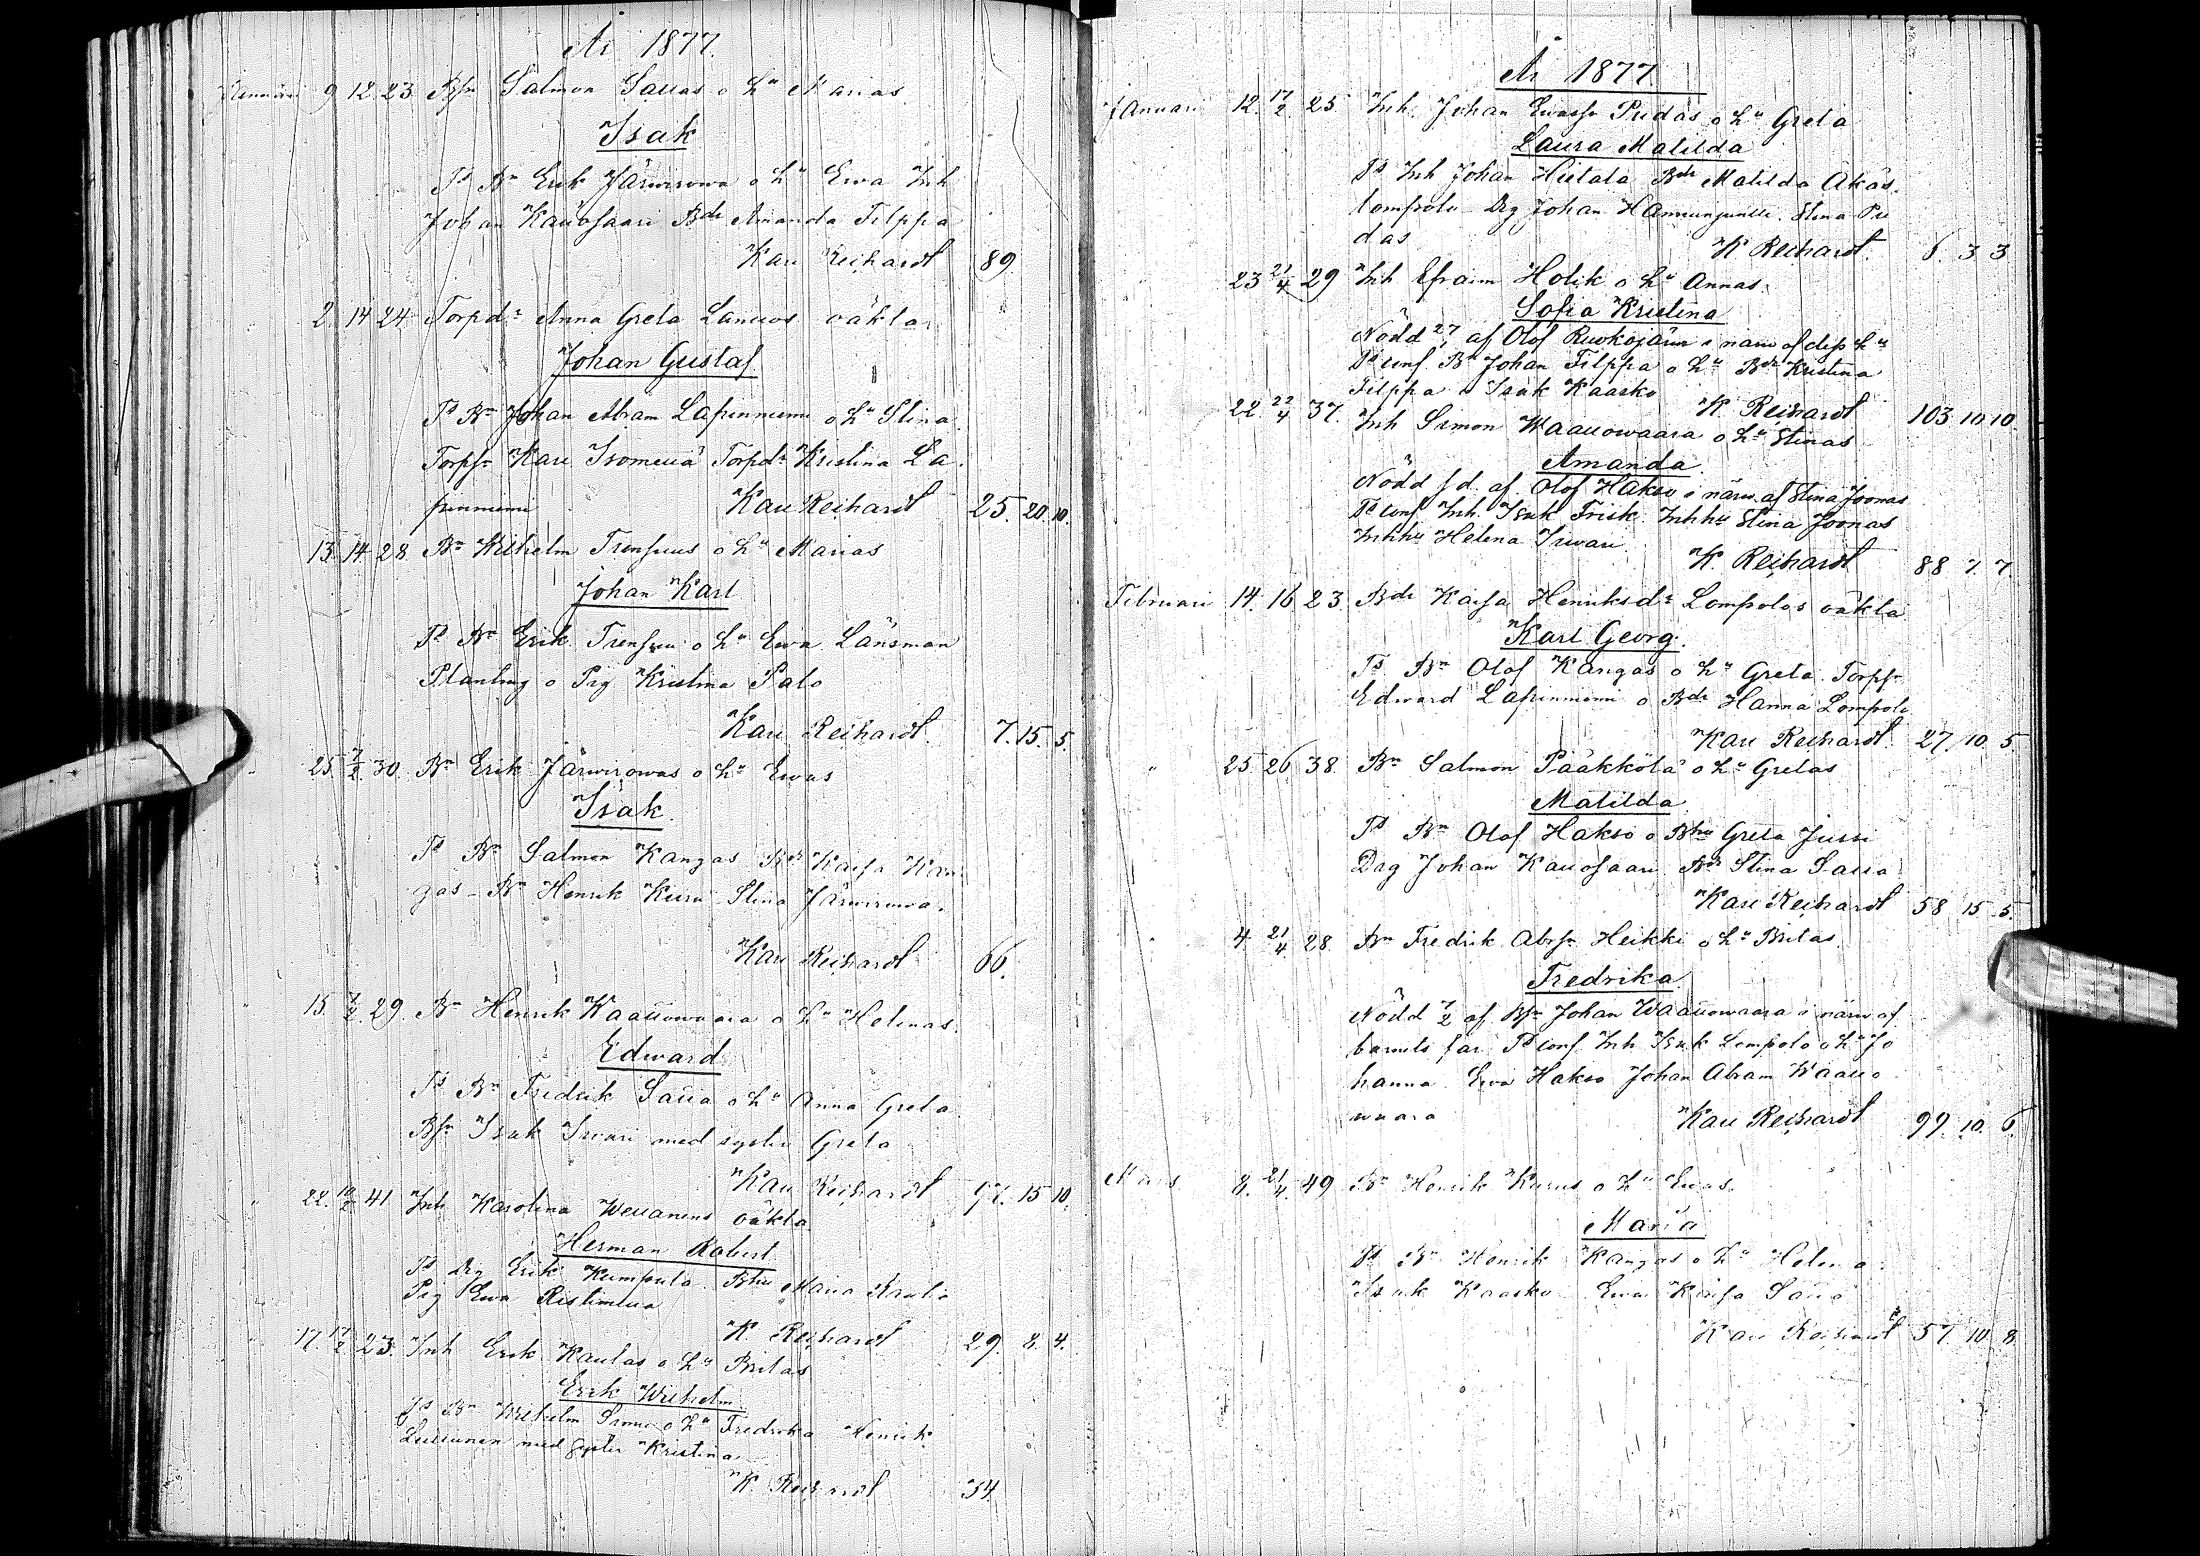 År 1877.
Januari 9 12 23 Bsn Salmon Sauas o hu Marias
Isak
Ts Bn Erik Järwirowa o hu Ewa Inh
Johan Kauosaari Bdr Amanda Filppa
Karl Reihardt 89
2. 14 24 Torpdr Anna Greta Lanuos oäkta
Johan Gustaf
Ts Bn Johan Abram Lapinniemi o hu Stina
Torpsn Karl Isomeua Torpdr Kristina La
pinniemi Karl Reihardt 25. 20. 10.
13 14 28 Bn Wilhelm Trensuus o hu Marias
Johan Karl
Ts Bn Erik Trensuu o hu Ewa Länsman
Planting o Pig Kristina Palo
Karl Reihardt 7. 15. 5.
" 25 7/2 30. Bn Erik Järwirowas o hu Ewas
Isak
Ts Bn Salmon Kangas Bdr Kaisa Kan
gas - Bn Henrik Kuru Stina Järwirowa.
Karl Reihardt 66.
" 15. 7/2 29. Bn Henrik Waauowaara o hu Helenas.
Edward
Ts Bn Fredrik Saua o hu Anna Greta
Bsn Isak Iwari med syster Greta
Karl Reihardt 97. 15 10.
" 22. 10/2 41 Inh Karolina Weuanens oäkta
Herman Robert
Ts Drg Erik Kumpula Bhu Maria
Pig Ewa Ristimeua
K Reihardt 29. 8. 4.
" 17. 17/2 23. Inh Erik Kaulas o hu Britas
Erik Wilhelm
Ts Bn Wilhelm o hu Fredrika Henrik
med syster Kristina
K Reihardt 34.
År 1877.
Januari 12. 17/2 25 Inh. Johan Ewassn Pudas o hu Greta
Laura Matilda
Ts Inh Johan Hietala Bdr Matilda Äkäs.
lompolo Drg Johan Hannunjuntti. Stina Pu
das K Reihardt. 6. 3 3
" 23 21/4 29 Inh Efraim Holik o hu Annas.
Sofia Kristina
Nödd 27 af Olof Ruokojärwi i närw af dess hu
Ts conf. Bn Johan Filppa o hu Bdr Kristina
Filppa o Isak Kaasko
K. Reihardt 103 10 10.
22. 22/4 37. Inh Simon Waauowaara o hu Stinas
Amanda
Nödd s d. af Olof Hakso i närw. af Stina Joonas
Ts conf Inh. Isak Frisk. Inhhu Stina Joonas
Inhhu Helena Iwari.
K. Reihardt 88 7. 7.
Februari 14. 16 23 Bdr Kaisa Henriksdr Lompolos oäkta
Karl Georg.
Ts Bn Olof Kangas o hu Greta Torpsn
Edward Lapinniemi o Bdr Hanna Lompolo
Karl Reihardt 27 10. 5
" 25. 26 38 Bn Salmon Pääkkölä o hu Gretas
Matilda
Ts Bn Olof Hakso o Bhu Greta Jussi
Drg Johan Kauosaari Bdr Stina Saua
Karl Reihardt 58 15 5.
" 4. 21/4 28. Bn Fredrik Abrsn Heikki o hu Britas.
Fredrika
Nödd 7/2 af Bsn Johan Waauowaara i närw af
barnets far. Ts conf. Inh Isak Lompolo o hu Jo
hanna Ewa Hakso Johan Abram Waauo
waara Karl Reihardt 99. 10. 6.
Mars 8. 21/4. 49 Bn Henrik Kurus o hu Ewas.
Maria
Ts Bn Henrik Kangas o hu Helena
Isak Kaasko Ewa Kaisa Saua
Karl Reihardt 57. 10. 8.